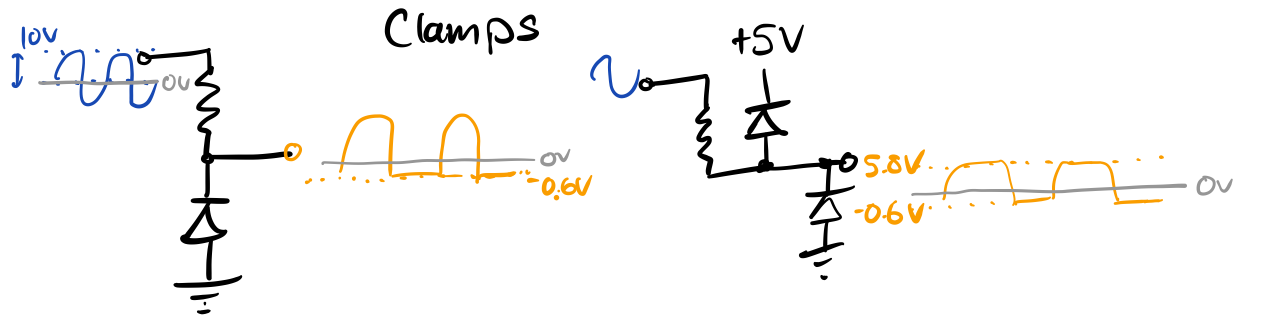 Clamps
10V
0V
0V
-0.6V
+5V
5.8V
-0.6V
0V